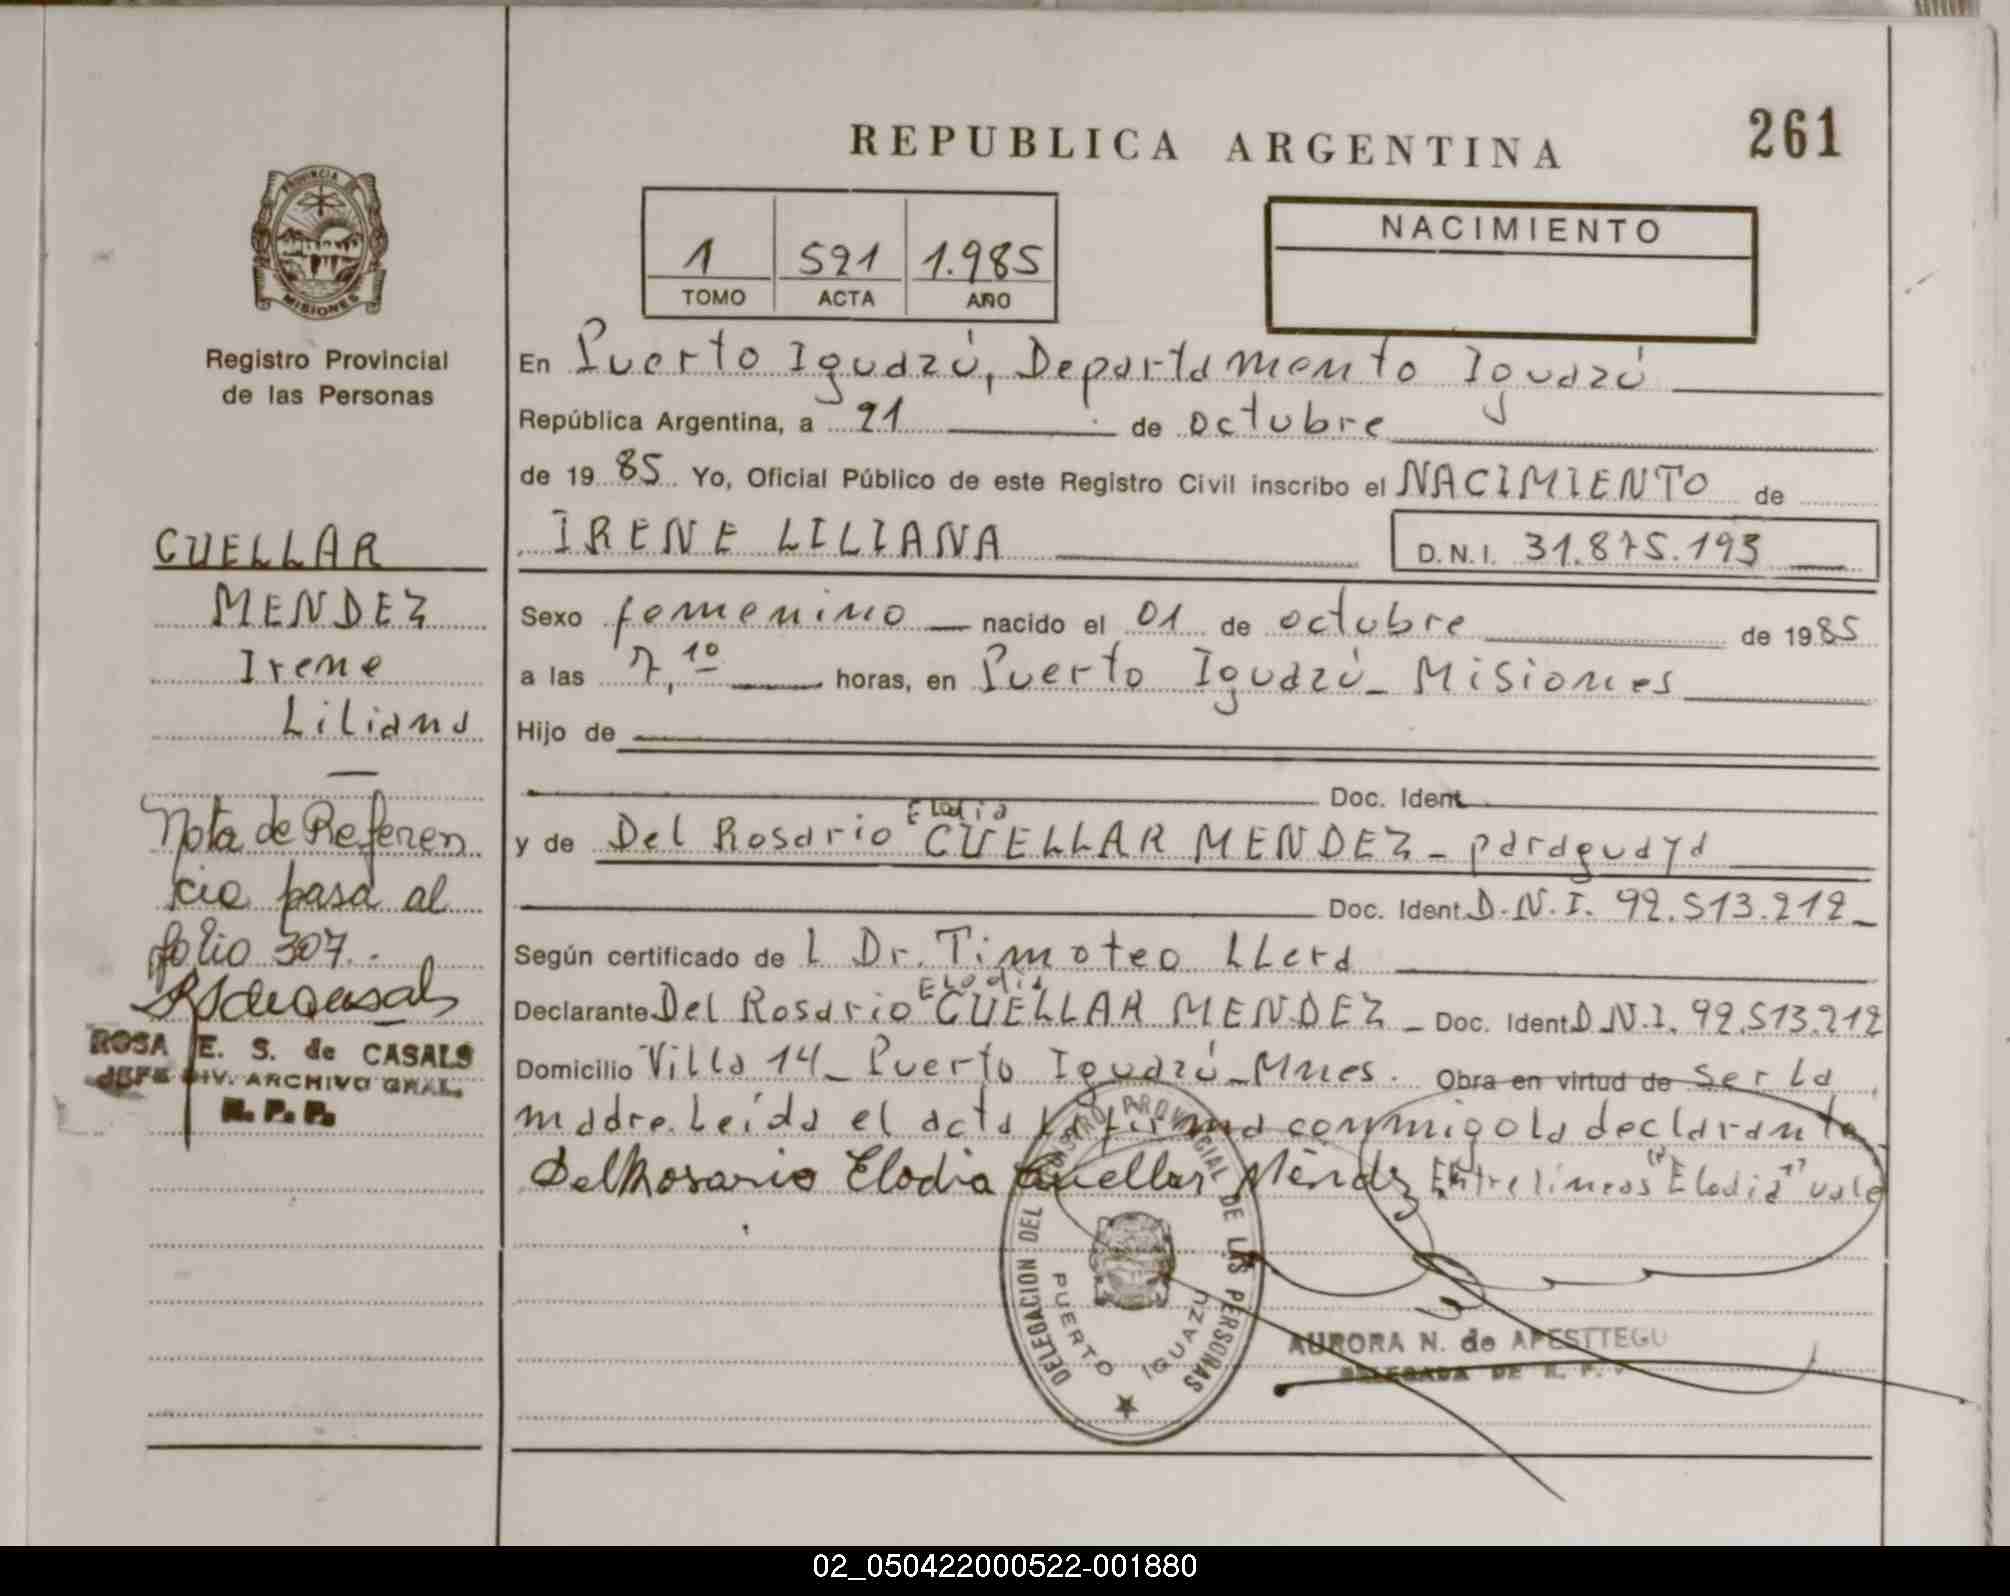 REPUBLICA ARGENTINA
261
PROVINCIA DE
MISIONES
Registro Provincial
de las Personas
1 521 1.985
TOMO ACTA AÑO
NACIMIENTO
En Puerto Iguazú, Departamento Iguazú
República Argentina, a 21 de octubre
de 1985 Yo, Oficial Público de este Registro Civil inscribo el NACIMIENTO de
IRENE LILIANA D.N.I. 31.875.193
Sexo femenino nacido el 01 de octubre de 1985
a las 7,10 horas, en Puerto Iguazú - Misiones
Hijo de
Doc. Ident.
Elodia
y de Del Rosario CUELLAR MENDEZ - paraguaya
Doc. Ident. D.N.I. 92.513.212
Según certificado de L Dr. Timoteo LLera
Elodia
Declarante Del Rosario CUELLAR MENDEZ - Doc. Ident. D.N.I. 92.513.212
Domicilio Villa 14 - Puerto Iguazú - Mnes. Obra en virtud de Ser La
madre. Leída el acta la firma conmigo la declarante
Del Rosario Elodia Cuellar Méndez Entre líneas "Elodia" vale
DELEGACION DEL REGISTRO PROVINCIAL DE LAS PERSONAS
PUERTO IGUAZU
AURORA N. de APESTTEGU
DELEGADA DE R. P.
CUELLAR
MENDEZ
Irene
Liliana
Nota de Referen
cia pasa al
folio 307.-
ROSA E. S. de CASALS
JEFE DIV. ARCHIVO GRAL.
R. P. P.
02_050422000522-001880